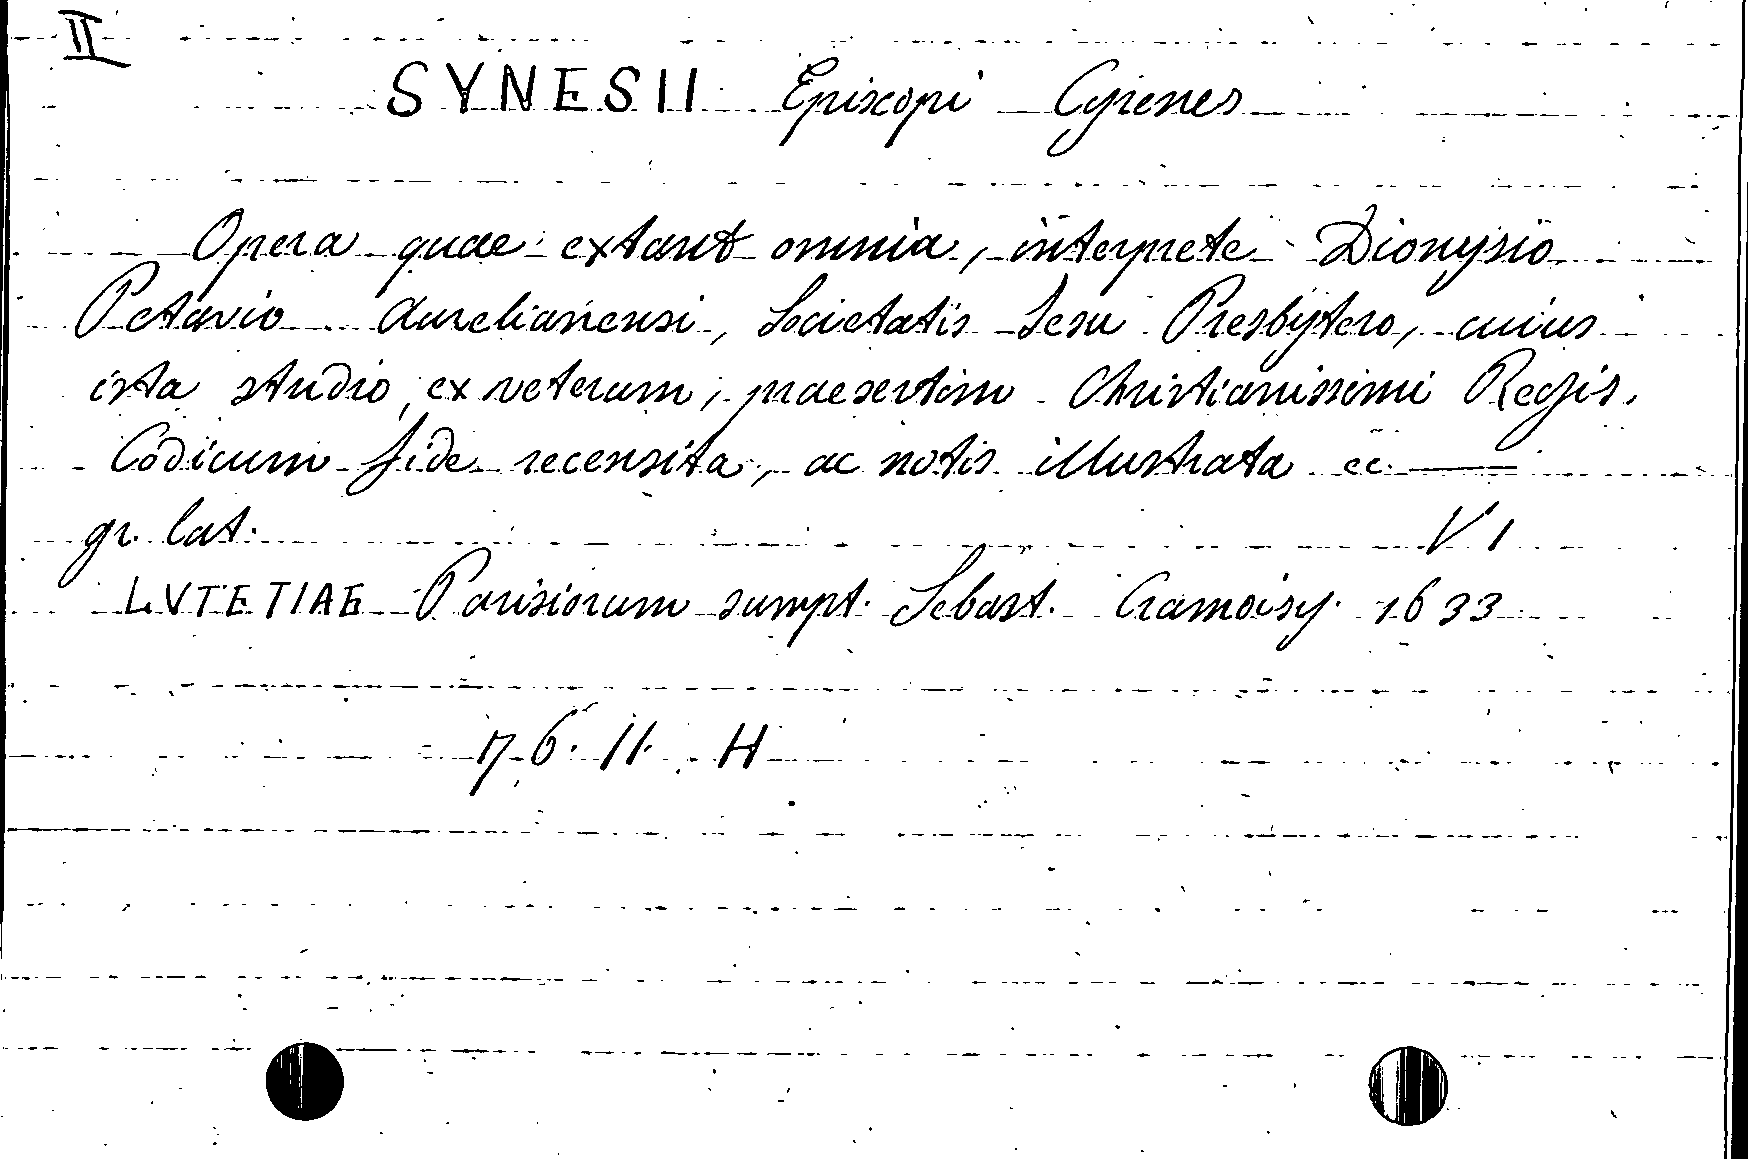 II
SYNESII Episcopi Cyrenes
Opera quae extant omnia, interprete Dionysio
Petavio Aurelianensi, Societatis Iesu Presbytero, cuius
ista studio, ex veterum, praesertim Christianissimi Regis,
Codicum fide recensita, ac notis illustrata ec.
gr. lat. V 1
LVTETIAE Parisiorum sumpt. Sebast. Cramoisy. 1633
17.6.11. H